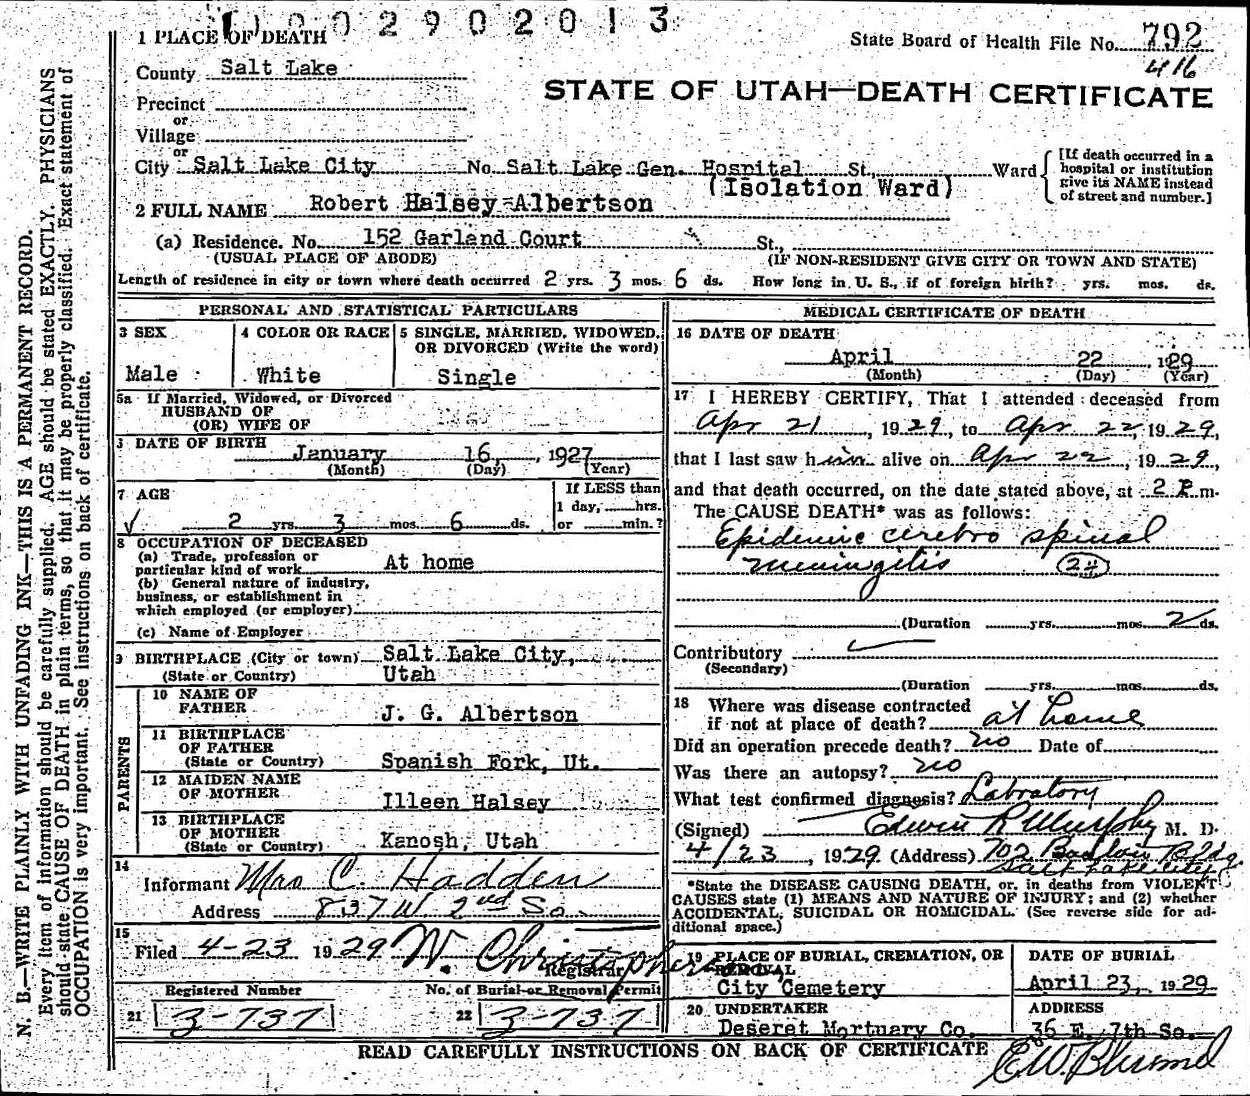 0 0 2 9 0 2 0 1 3
1 PLACE OF DEATH
State Board of Health File No. 792
416
County Salt Lake
STATE OF UTAH—DEATH CERTIFICATE
Precinct
or
Village
or
City Salt Lake City No. Salt Lake Gen. Hospital St., Ward
(Isolation Ward)
[If death occurred in a
hospital or institution
give its NAME instead
of street and number.]
2 FULL NAME Robert Halsey Albertson
(a) Residence. No. 152 Garland Court St.,
(USUAL PLACE OF ABODE) (IF NON-RESIDENT GIVE CITY OR TOWN AND STATE)
Length of residence in city or town where death occurred 2 yrs. 3 mos. 6 ds. How long in U. S., if of foreign birth? yrs. mos. ds.
PERSONAL AND STATISTICAL PARTICULARS
3 SEX
Male
4 COLOR OR RACE
White
5 SINGLE, MARRIED, WIDOWED,
OR DIVORCED (Write the word)
Single
5a If Married, Widowed, or Divorced
HUSBAND OF
(OR) WIFE OF
DATE OF BIRTH
January 16, 1927
(Month) (Day) (Year)
7 AGE
2 yrs. 3 mos. 6 ds.
If LESS than
1 day, hrs.
or min.?
8 OCCUPATION OF DECEASED
(a) Trade, profession or
particular kind of work At home
(b) General nature of industry,
business, or establishment in
which employed (or employer)
(c) Name of Employer
9 BIRTHPLACE (City or town) Salt Lake City,
(State or Country) Utah
PARENTS
10 NAME OF
FATHER J. G. Albertson
11 BIRTHPLACE
OF FATHER
(State or Country) Spanish Fork, Ut.
12 MAIDEN NAME
OF MOTHER Illeen Halsey
13 BIRTHPLACE
OF MOTHER
(State or Country) Kanosh, Utah
14
Informant Mrs C. Hadden
Address 837 W. 2nd So.
15
Filed 4-23 1929 W. Christopherson
Registrar
Registered Number No. of Burial or Removal Permit
21 3-737 22 3-737
MEDICAL CERTIFICATE OF DEATH
16 DATE OF DEATH
April 22 1929
(Month) (Day) (Year)
17 I HEREBY CERTIFY, That I attended deceased from
Apr 21, 1929, to Apr 22, 1929,
that I last saw him alive on Apr 22, 1929,
and that death occurred, on the date stated above, at 2 P m.
The CAUSE DEATH* was as follows:
Epidemic cerebro spinal
meningitis (24)
(Duration yrs. mos. 2 ds.
Contributory
(Secondary)
(Duration yrs. mos. ds.
18 Where was disease contracted
if not at place of death? at home
Did an operation precede death? no Date of
Was there an autopsy? no
What test confirmed diagnosis? Labratory
(Signed) Edwin R Murphy M. D.
4/23, 1929 (Address) 702 Bldg.
Salt Lake City
*State the DISEASE CAUSING DEATH, or, in deaths from VIOLENT
CAUSES state (1) MEANS AND NATURE OF INJURY; and (2) whether
ACCIDENTAL, SUICIDAL OR HOMICIDAL. (See reverse side for ad-
ditional space.)
19 PLACE OF BURIAL, CREMATION, OR
REMOVAL
City Cemetery
DATE OF BURIAL
April 23, 1929
20 UNDERTAKER
Deseret Mortuary Co.
ADDRESS
36 E. 7th So.
READ CAREFULLY INSTRUCTIONS ON BACK OF CERTIFICATE
N. B.—WRITE PLAINLY WITH UNFADING INK—THIS IS A PERMANENT RECORD.
Every item of information should be carefully supplied. AGE should be stated EXACTLY. PHYSICIANS
should state CAUSE OF DEATH in plain terms, so that it may be properly classified. Exact statement of
OCCUPATION is very important. See instructions on back of certificate.